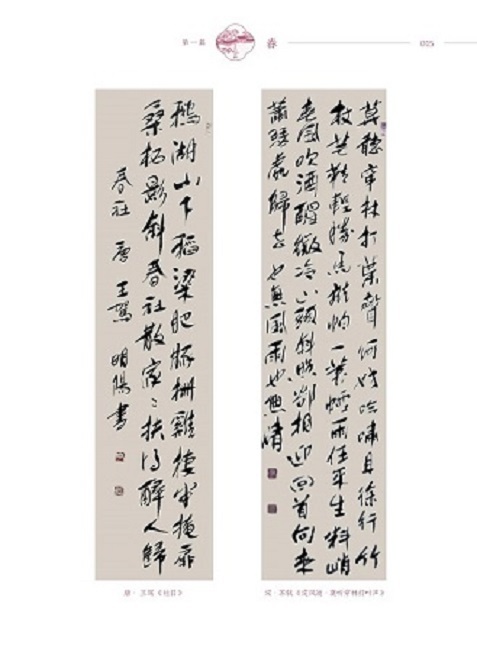 第一篇 春 025
莫聽穿林打葉聲何妨吟嘯且徐行竹
杖芒鞋輕勝馬誰怕一蓑煙雨任平生料峭
春風吹酒醒微冷山頭斜照卻相迎回首向來
蕭瑟處歸去也無風雨也無晴
鵝湖山下稻粱肥豚柵雞棲半掩扉
桑柘影斜春社散家〻扶得醉人歸
春社 唐 王駕 明陽書
唐·王驾《社日》
宋·苏轼《定风波·莫听穿林打叶声》